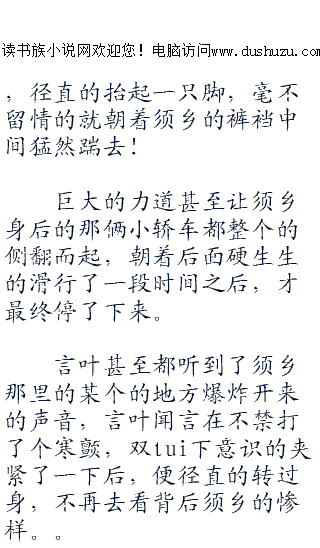 读书族小说网欢迎您！电脑访问www.dushuzu.com
，径直的抬起一只脚，毫不
留情的就朝着须乡的裤裆中
间猛然踹去！
巨大的力道甚至让须乡
身后的那俩小轿车都整个的
侧翻而起，朝着后面硬生生
的滑行了一段时间之后，才
最终停了下来。
言叶甚至都听到了须乡
那里的某个的地方爆炸开来
的声音，言叶闻言在不禁打
了个寒颤，双tui下意识的夹
紧了一下后，便径直的转过
身，不再去看背后须乡的惨
样。。